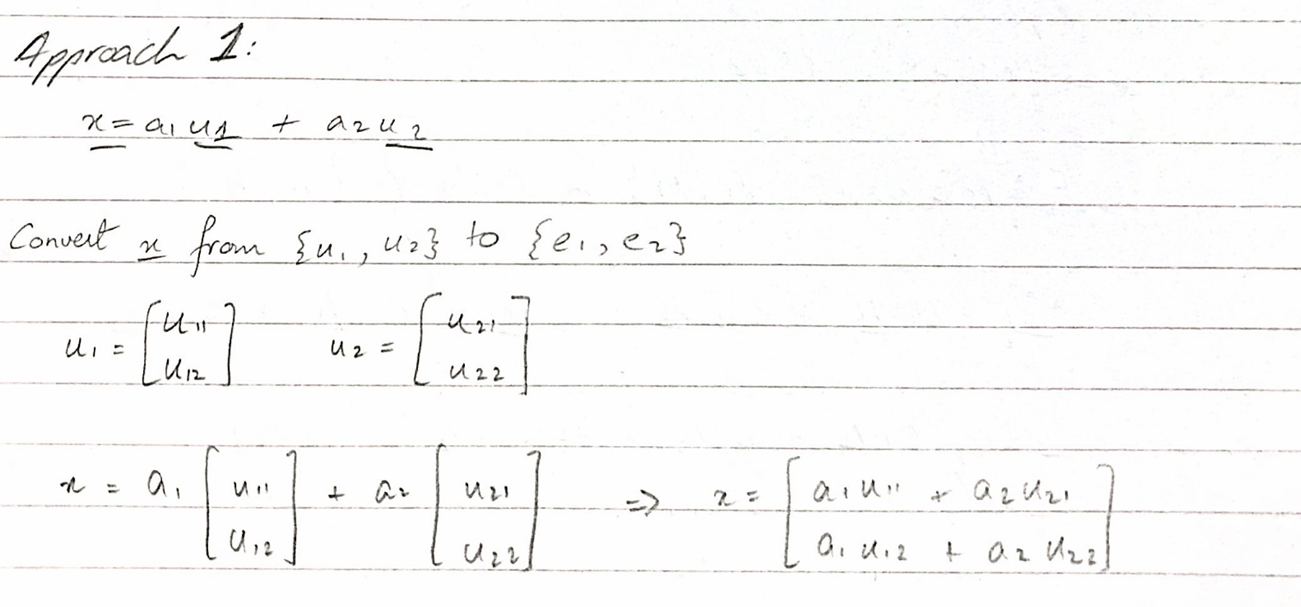 Approach 1:
x = a₁u₁ + a₂u₂
Convert x from {u₁, u₂} to {e₁, e₂}
u₁ = [u₁₁ u₁₂] u₂ = [u₂₁ u₂₂]
x = a₁ [u₁₁ u₁₂] + a₂ [u₂₁ u₂₂] => x = [a₁u₁₁ + a₂u₂₁ a₁u₁₂ + a₂u₂₂]